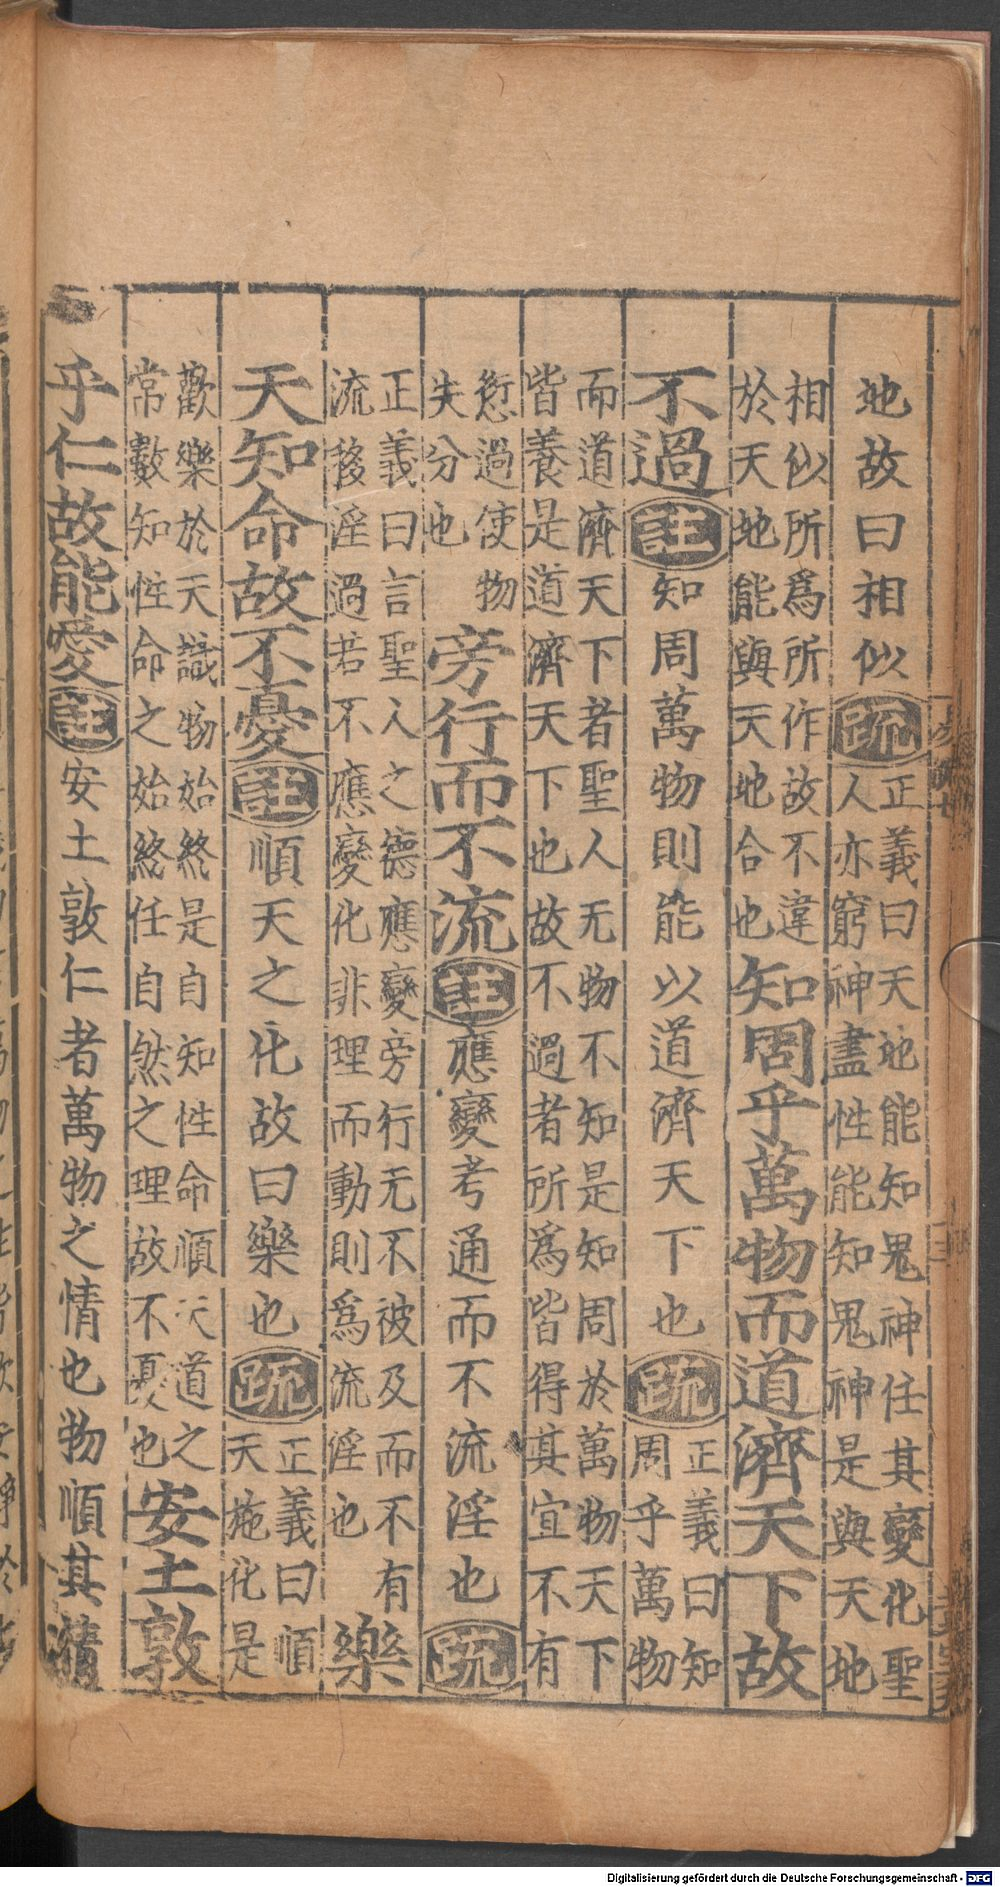 地故曰相似疏正義曰天地能知鬼神任其變化聖
人亦窮神盡性能知鬼神是與天地
相似所爲所作故不違
於天地能與天地合也知周乎萬物而道濟天下故
不過註知周萬物則能以道濟天下也疏正義曰知
周乎萬物
而道濟天下者聖人无物不知是知周於萬物天下
皆養是道濟天下也故不過者所爲皆得其宜不有
愆過使物
失分也旁行而不流註應變考通而不流淫也疏
正義曰言聖人之德應變旁行无不被及而不有
流移淫過若不應變化非理而動則爲流淫也樂
天知命故不憂註順天之化故曰樂也疏正義曰順
天施化是
歡樂於天識物始終是自知性命順天道之
常數知性命之始終任自然之理故不憂也安土敦
乎仁故能愛註安土敦仁者萬物之情也物順其情
Digitalisierung gefördert durch die Deutsche Forschungsgemeinschaft - DFG